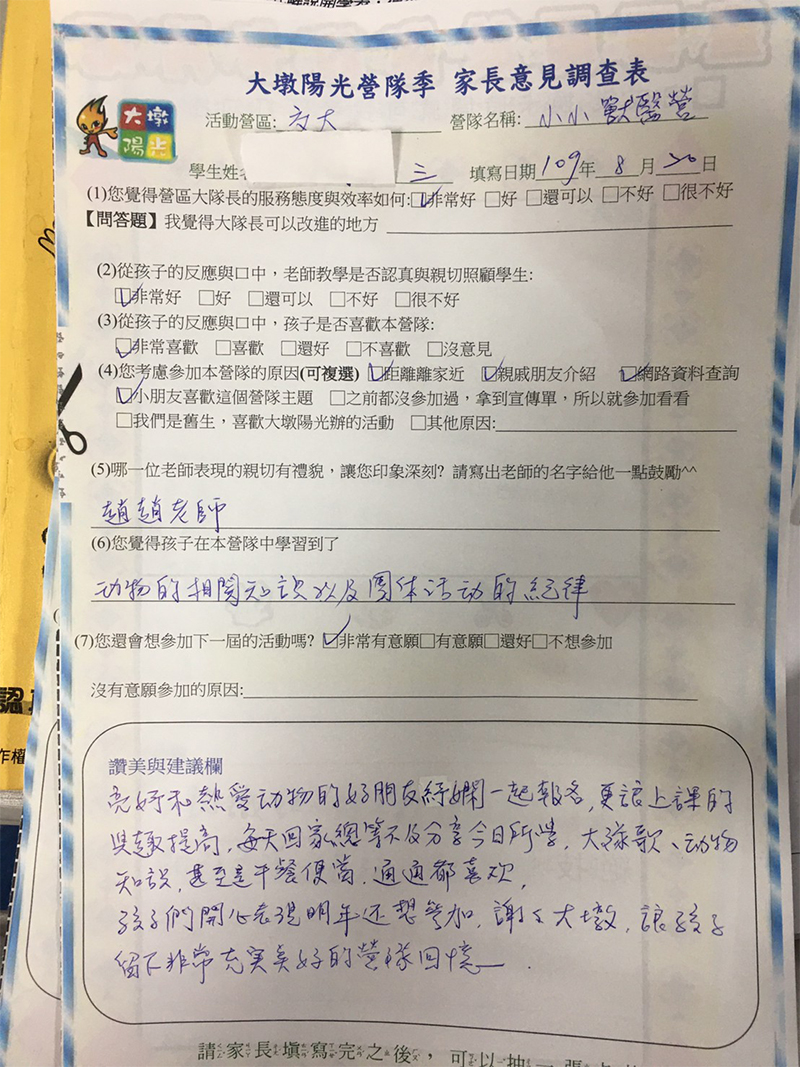 大墩陽光營隊季 家長意見調查表
大墩
陽光
活動營區: 交大 營隊名稱: 小小獸醫營
學生姓名 三 填寫日期109年8月30日
(1)您覺得營區大隊長的服務態度與效率如何:☑非常好 □好 □還可以 □不好 □很不好
【問答題】我覺得大隊長可以改進的地方
(2)從孩子的反應與口中，老師教學是否認真與親切照顧學生:
☑非常好 □好 □還可以 □不好 □很不好
(3)從孩子的反應與口中，孩子是否喜歡本營隊:
☑非常喜歡 □喜歡 □還好 □不喜歡 □沒意見
(4)您考慮參加本營隊的原因(可複選) ☑距離離家近 ☑親戚朋友介紹 ☑網路資料查詢
☑小朋友喜歡這個營隊主題 □之前都沒參加過，拿到宣傳單，所以就參加看看
□我們是舊生，喜歡大墩陽光辦的活動 □其他原因:
(5)哪一位老師表現的親切有禮貌，讓您印象深刻? 請寫出老師的名字給他一點鼓勵^^
趙趙老師
(6)您覺得孩子在本營隊中學習到了
动物的相関知識以及團体活动的紀律
(7)您還會想參加下一屆的活動嗎? ☑非常有意願□有意願□還好□不想參加
沒有意願參加的原因:
讚美與建議欄
和熱愛动物的好朋友 一起報名，更讓上課的
興趣提高，每天回家總等不及分享今日所學，大隊歌、动物
知識，甚至是午餐便當，通通都喜欢，
孩子們開心表現明年还想參加，謝々大墩，讓孩子
留下非常充実美好的營隊回憶
請家長填寫完之後，可以抽一張